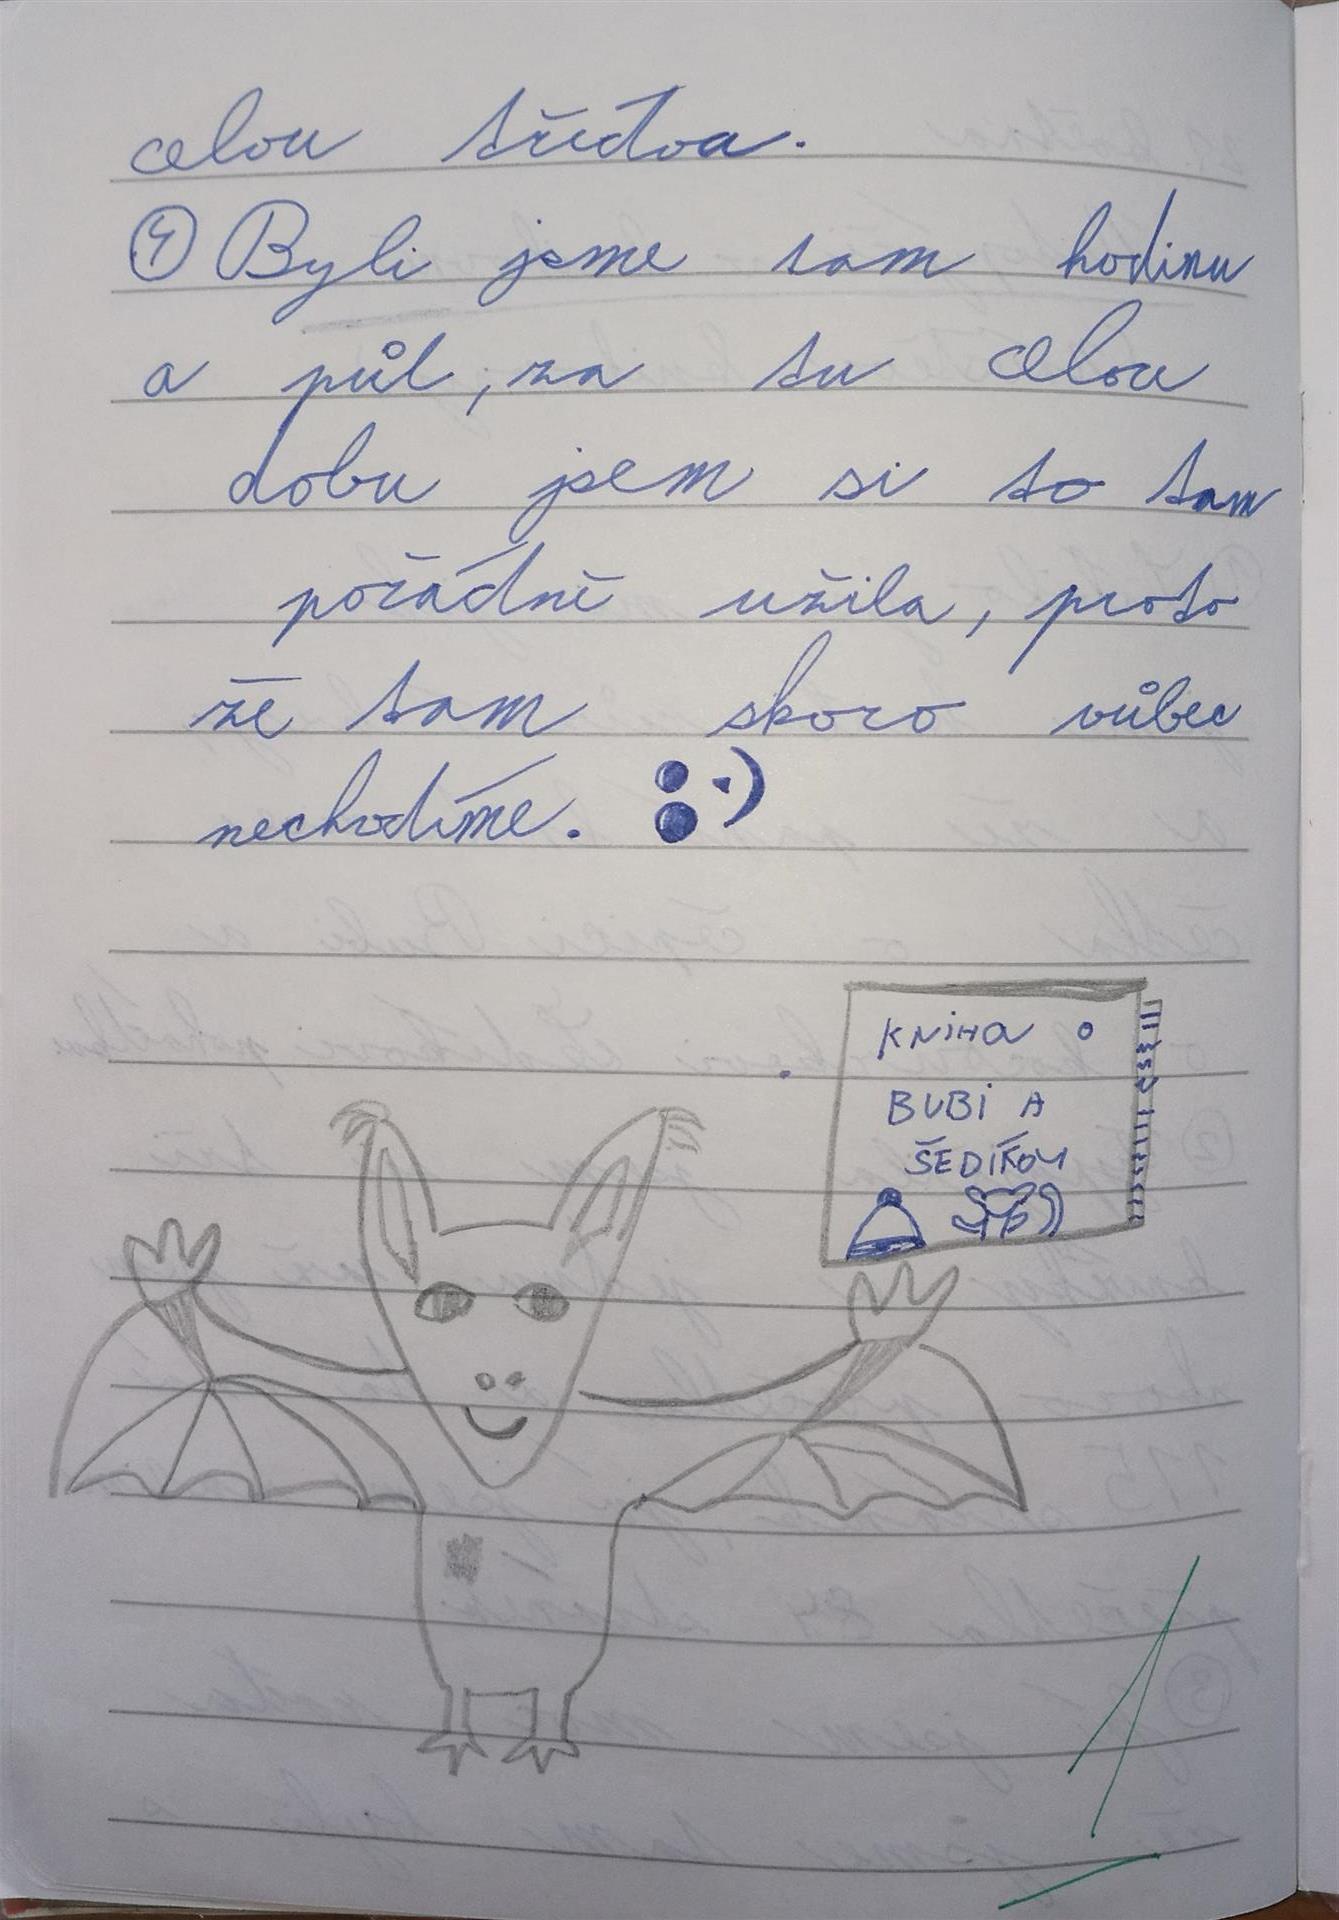 celou třídou.
④ Byli jsme tam hodinu
a půl, za tu celou
dobu jsem si to tam
pořádně užila, proto
že tam skoro vůbec
nechodíme. :·)
KNIHA O
BUBI A
ŠEDÍKOVI
1